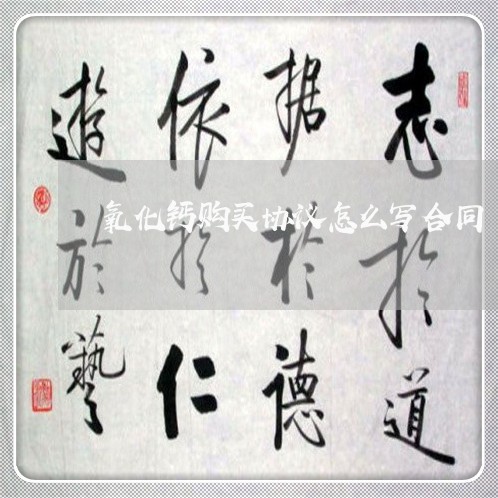 志於道
据於德
依於仁
遊於藝
氧化钙购买协议怎么写合同